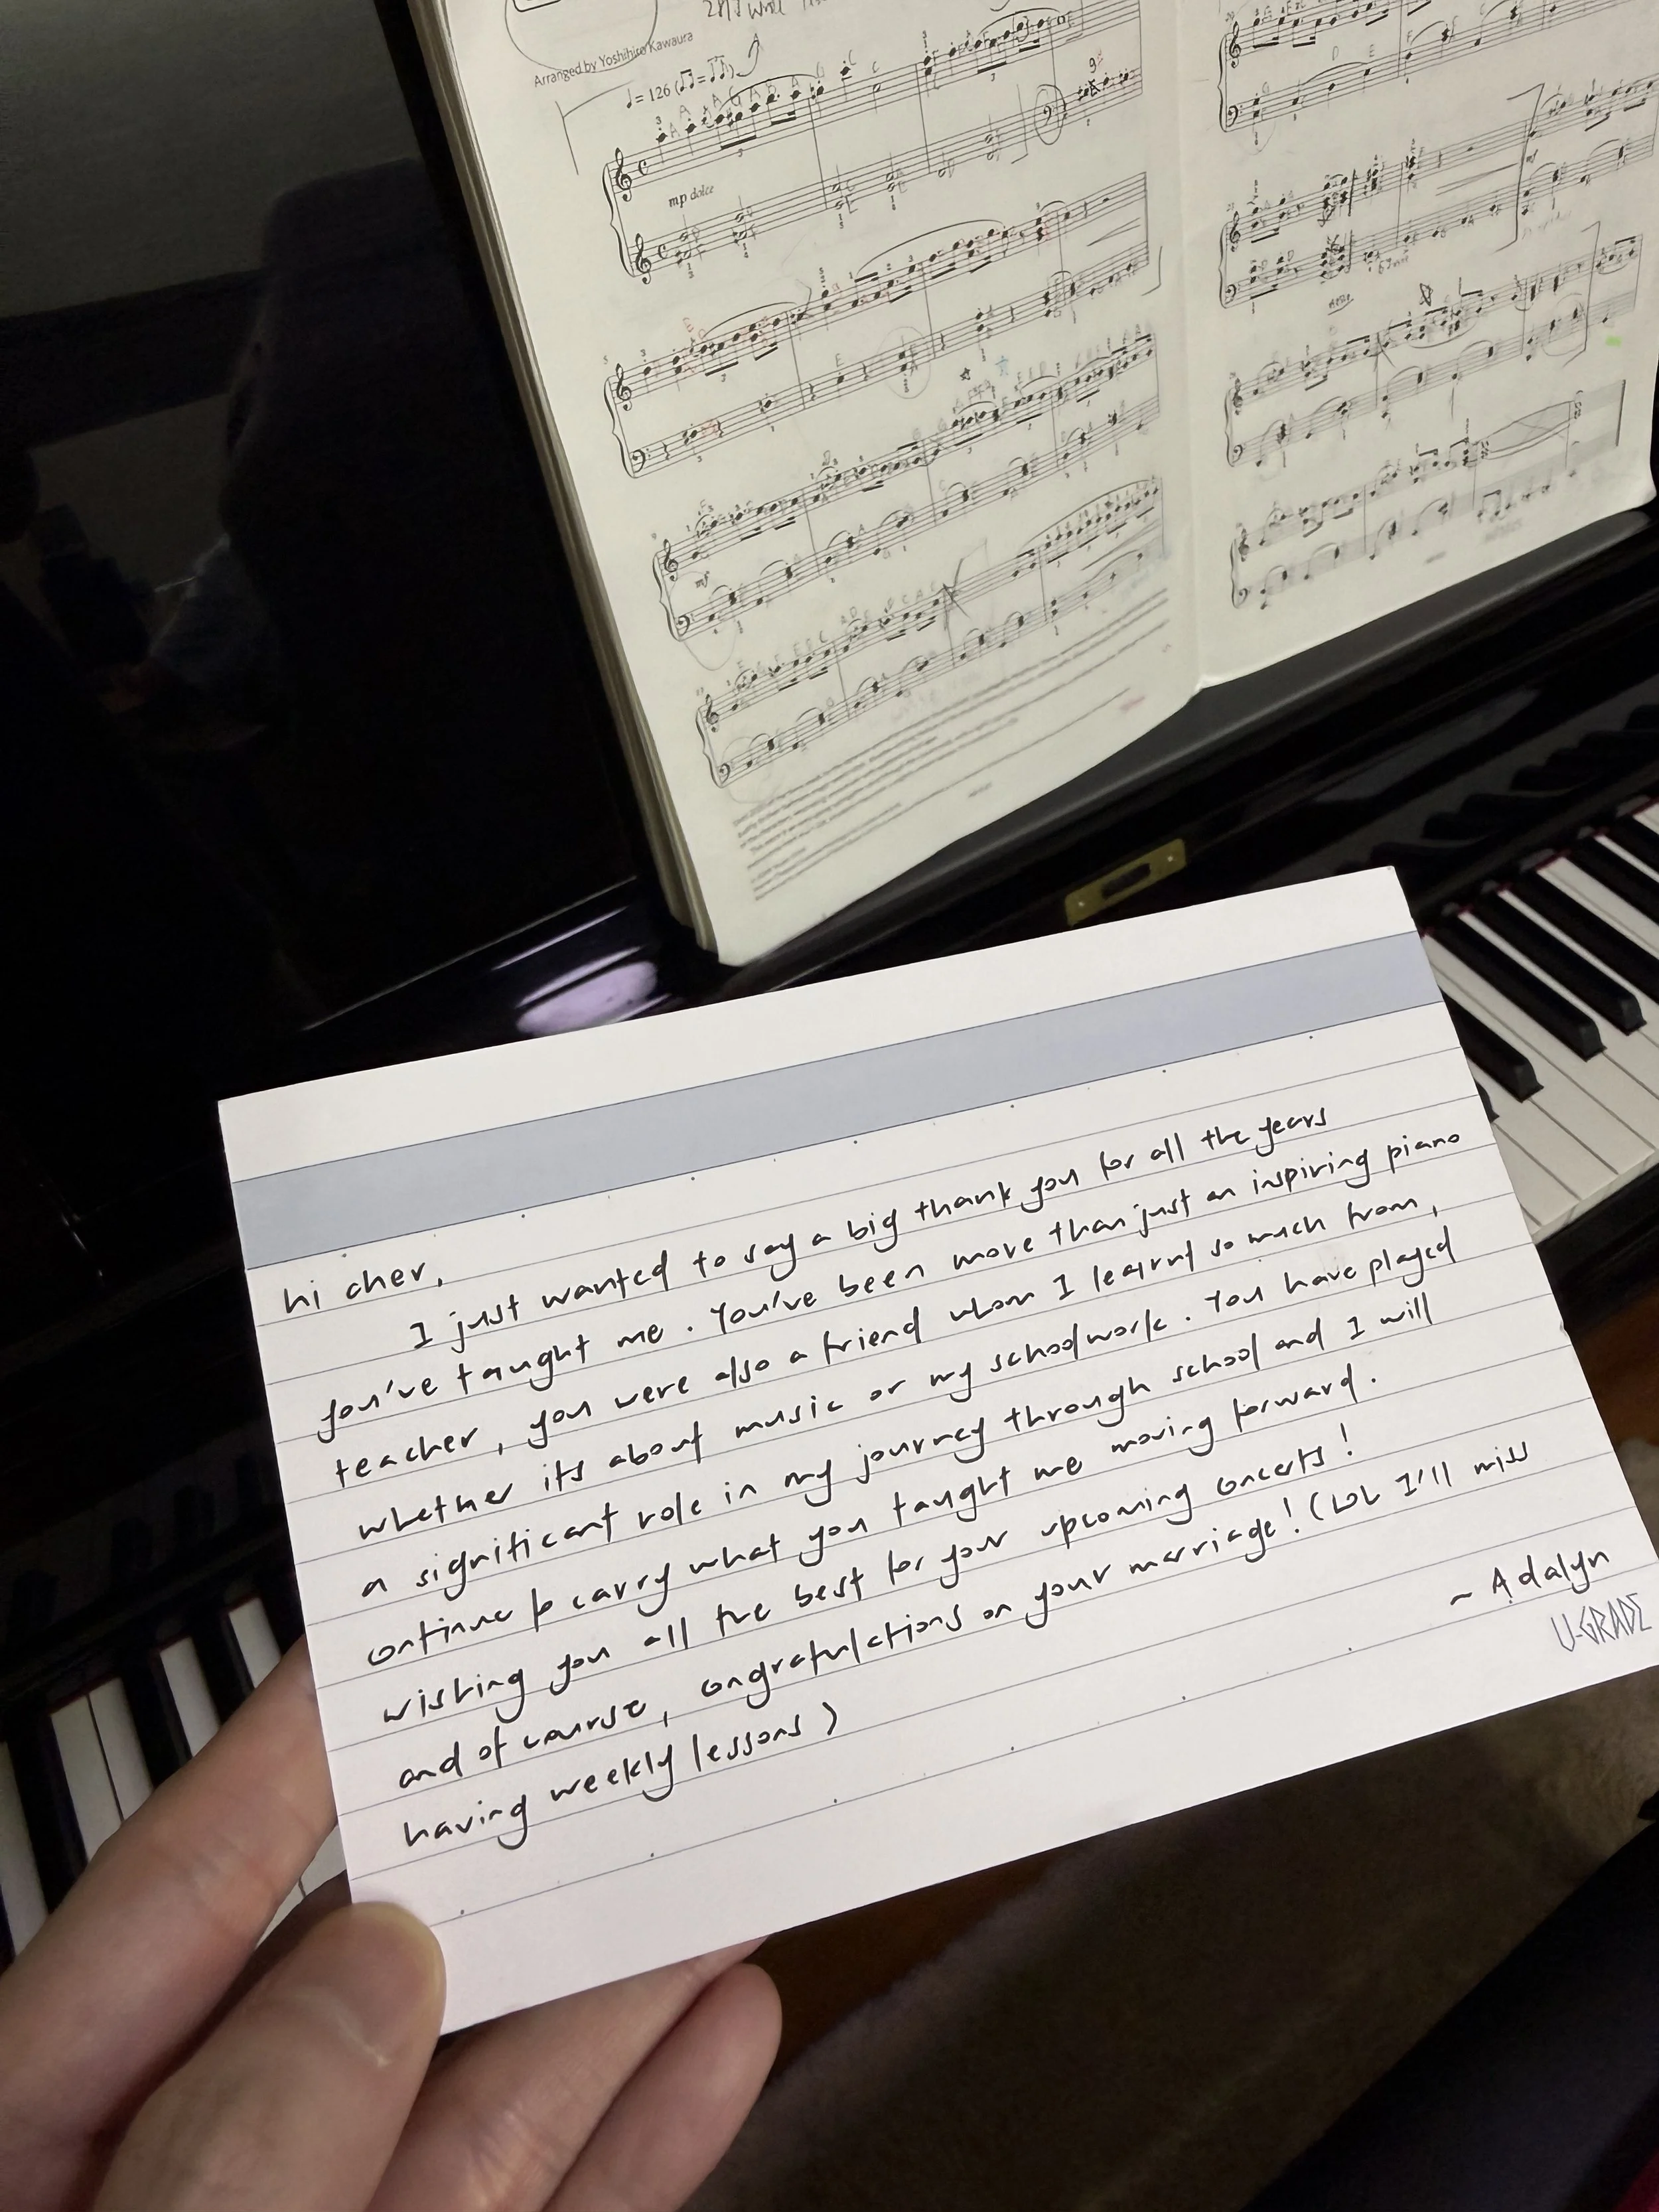 Arranged by Yoshihiro Kawaura
= 126
mp dolce
mf
hi cher,
I just wanted to say a big thank you for all the years
you've taught me. You've been more than just an inspiring piano
teacher, you were also a friend whom I learnt so much from,
whether its about music or my schoolwork. You have played
a significant role in my journey through school and I will
continue to carry what you taught me moving forward.
wishing you all the best for your upcoming concerts!
and of course, congratulations on your marriage! (LOL I'll miss
having weekly lessons)
~ Adalyn
U-GRADE